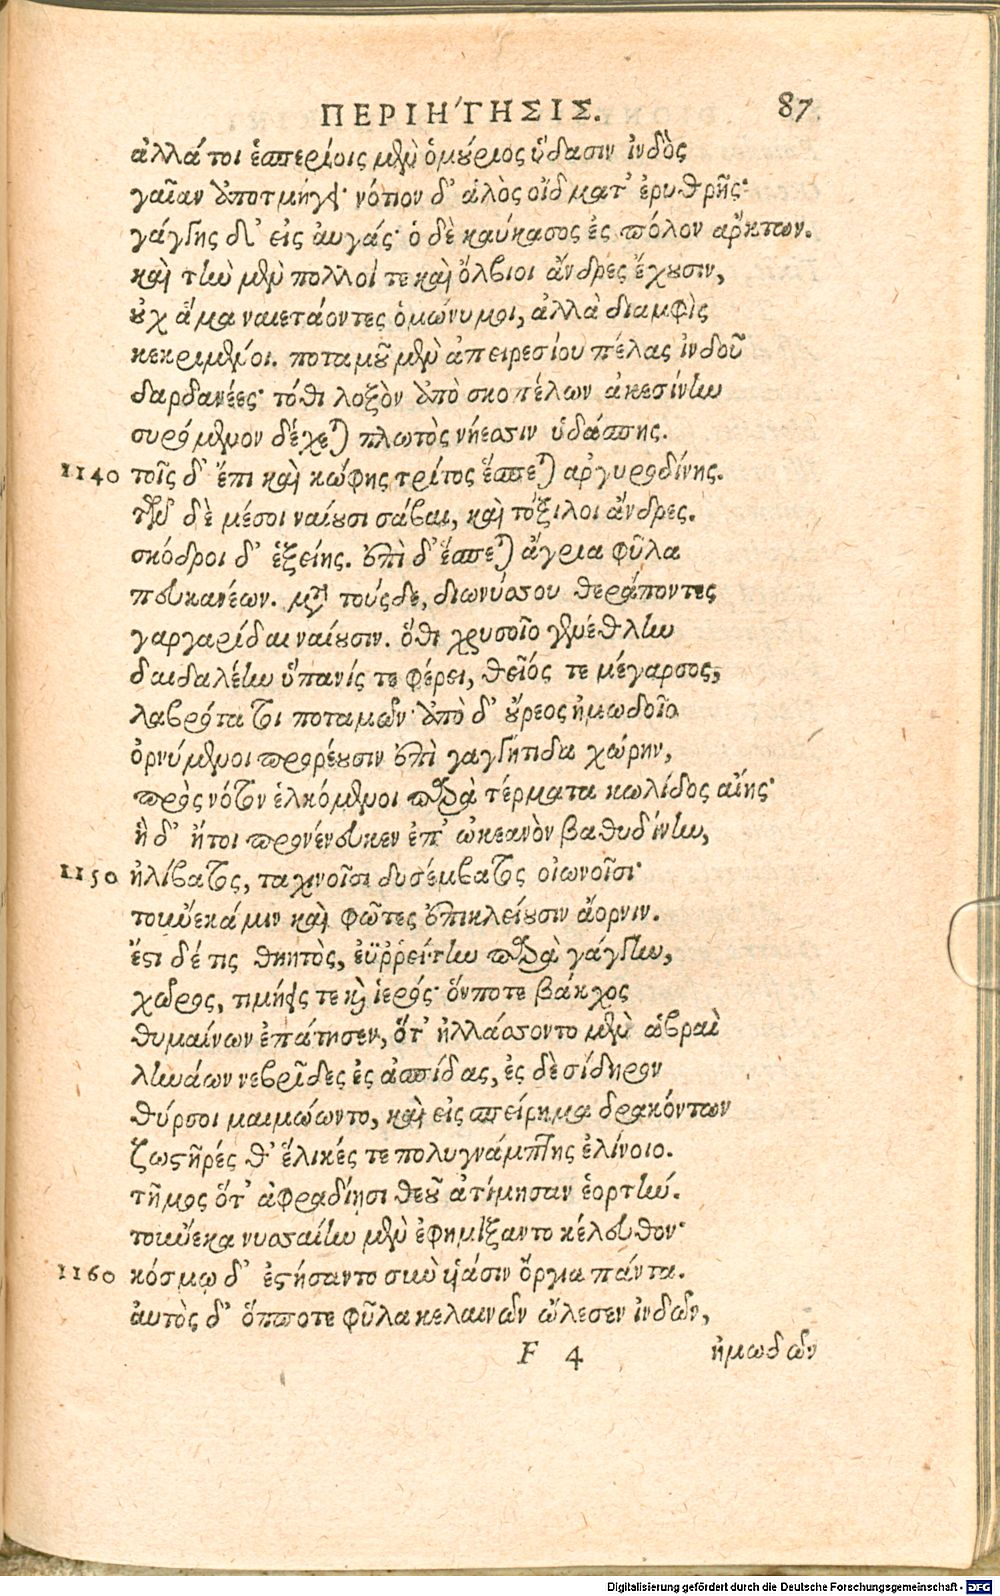 ΠΕΡΙΗΓΗΣΙΣ. 87.
ἀλλά τοι ἑσπερίοις μὲν ὁμούριος ὕδασιν ἰνδὸς
γαῖαν ἀποτμήγει· νότιον δ' ἁλὸς οἶδματ' ἐρυθρῆς·
γάγγης δ' εἰς αὐγάς· ὁ δὲ καύκασος ἐς πόλον ἄρκτων.
καὶ τὴν μὲν πολλοί τε καὶ ὄλβιοι ἄνδρες ἔχουσιν,
οὐχ ἅμα ναιετάοντες ὁμώνυμοι, ἀλλὰ διαμφὶς
κεκριμένοι. ποταμοῦ μὲν ἀπειρεσίου πέλας ἰνδοῦ
δαρδανέες· τόθι λοξὸν ἀπὸ σκοπέλων ἀκεσίνην
συρόμενον δέχεται πλωτὸς νήεσσιν ὑδάσπης.
1140 τοῖς δ' ἔπι καὶ κώφης τρίτος ἕσπεται ἀργυροδίνης.
τῶν δὲ μέσοι ναίουσι σάβαι, καὶ τόξιλοι ἄνδρες.
σκόδροι δ' ἑξείης. ἐπὶ δ' ἕσπεται ἄγρια φῦλα
πευκανέων. μετὰ τούσδε, διωνύσσου θεράποντες
γαργαρίδαι ναίουσιν. ὅθι χρυσοῖο γενέθλην
δαιδαλέην ὕπανίς τε φέρει, θεῖός τε μέγαρσος,
λαβρότατοι ποταμῶν· ἀπὸ δ' οὔρεος ἠμωδοῖο
ὀρνύμενοι προρέουσιν ἐπὶ γαγγήτιδα χώρην,
πρὸς νότον ἑλκόμενοι παρὰ τέρματα κωλίδος αἴης·
ἣ δ' ἤτοι προνένευκεν ἐπ' ὠκεανὸν βαθυδίνην,
1150 ἠλίβατος, ταχινοῖσι δυσέμβατος οἰωνοῖσι·
τοὔνεκά μιν καὶ φῶτες ἐπικλείουσιν ἄορνιν.
ἔστι δέ τις θηητὸς, ἐϋῤῥείτην παρὰ γάγγην,
χῶρος, τιμήεις τε καὶ ἱερός· ὅνποτε βάκχος
θυμαίνων ἐπάτησεν, ὅτ' ἠλλάσσοντο μὲν ἁβραὶ
ληνάων νεβρῖδες ἐς ἀσπίδας, ἐς δὲ σίδηρον
θύρσοι μαιμώωντο, καὶ εἰς σπείρημα δρακόντων
ζωστῆρές θ' ἕλικές τε πολυγνάμπτης ἑλίνοιο.
τῆμος ὅτ' ἀφραδίῃσι θεοῦ ἀτίμησαν ἑορτήν.
τοὔνεκα νυσσαίην μὲν ἐφημίξαντο κέλευθον·
1160 κόσμῳ δ' ἐστήσαντο σὺν υἱάσιν ὄργια πάντα.
αὐτὸς δ' ὅπποτε φῦλα κελαινῶν ὤλεσεν ἰνδῶν,
F 4 ἠμωδῶν
Digitalisierung gefördert durch die Deutsche Forschungsgemeinschaft - DFG